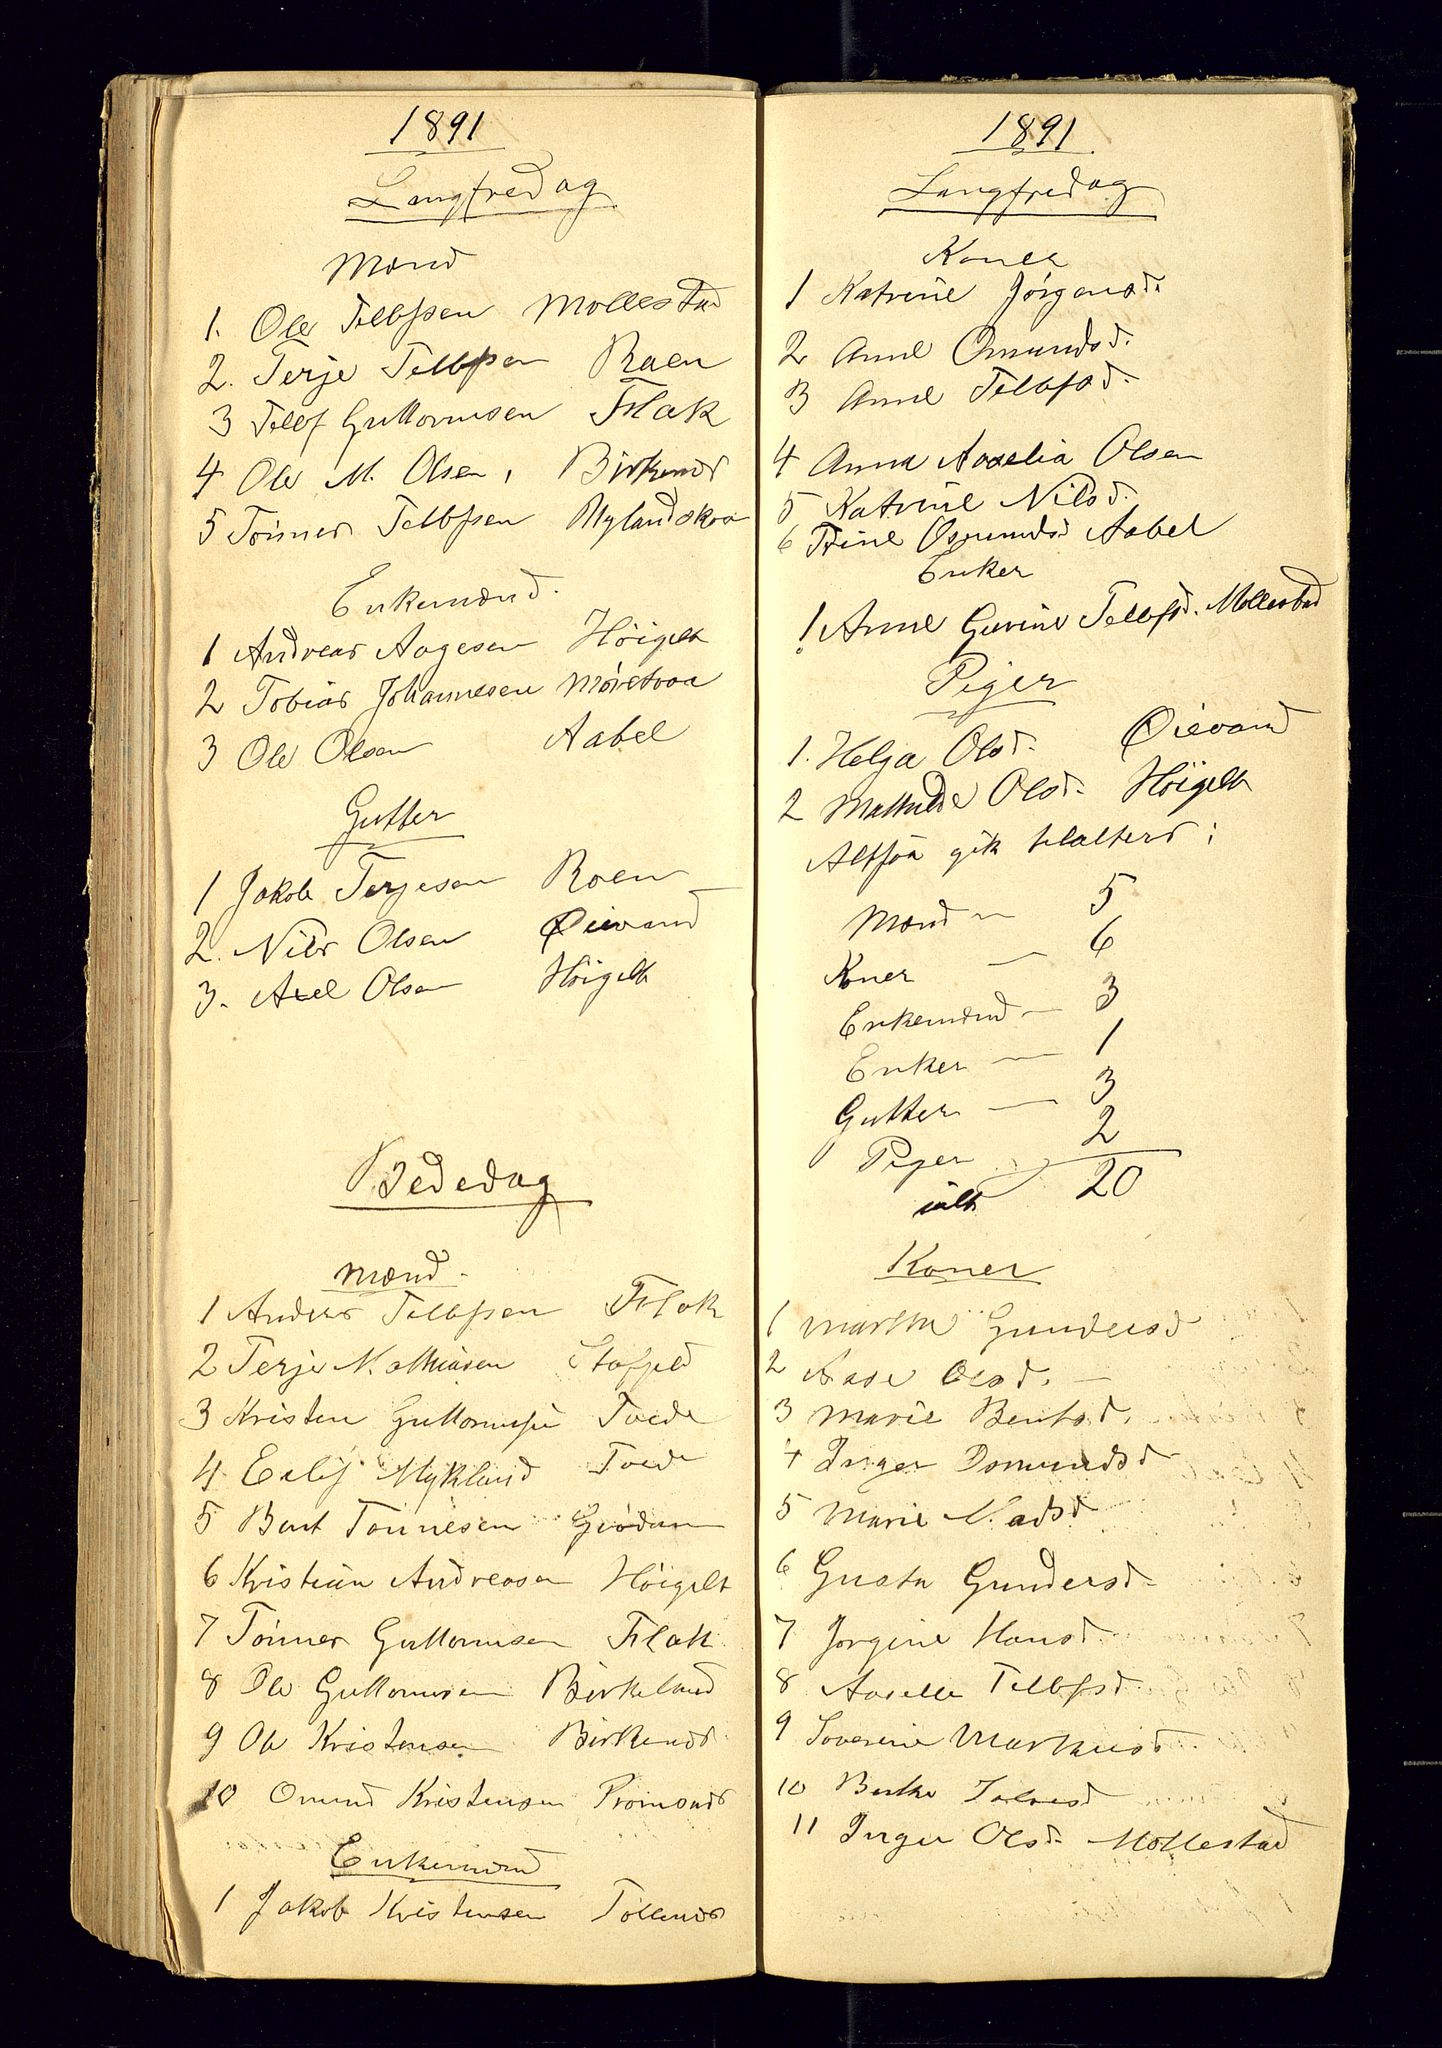 1891
Langfredag
Mænd
1. Ole Tellefsen Mollestad
2. Terje Tellefsen Roen
3 Tellef Guttormsen Flak
4 Ole M. Olsen, Birkenes
5 Tönnes Tellefsen Mylandskaa
Enkemænd.
1 Andreas Aagesen Höigilt
2 Tobias Johannesen Mönetvaa
3 Ole Olsen Aabel
Gutter
1 Jakob Terjesen Roen
2. Nils Olsen Öievand
3. Axel Olsen Höigilt
Bededag
Mænd.
1 Anders Tellefsen Flak
2 Terje Mathiasen
3 Kristen Guttormsen Tvede
4 Eilef Mykland Tvede
5 Bent Tönnesen
6 Kristian Andreasen Höigilt
7 Tönnes Guttormsen Flak
8 Ole Guttormsen Birkeland
9 Ole Kristensen Birkenes
10 Omund Kristensen
Enkemænd
1 Jakob Kristensen Töllenes
1891
Langfredag
Koner
1 Katrine Jörgensd.
2 Anne Omundsd.
3 Anne Tellefsd.
4 Anna Aaselia Olsen
5 Katrine Nilsd.
6 Trine Osmundsd Aabel
Enker
1 Anne Gurine Tellefsd. Mollestad
Piger
1. Helga Olsd. Öievand
2 Mathilde Olsd. Höigilt
Altsaa gik til alters;
Mænd — 5
Koner — 6
Enkemænd — 3
Enker — 1
Gutter — 3
Piger 2
ialt 20
Koner
1 Marthe Gundersd
2 Aase Olsd. —
3 Marie Bentsd.
4 Inger Osmundsd
5 Marie Madsd
6 Gusta Gundersd.
7 Jorgine Hansd.
8 Aaselle Tellefsd
9 Soverine Markusd.
10 Berthe
11 Inger Olsd. Mollestad